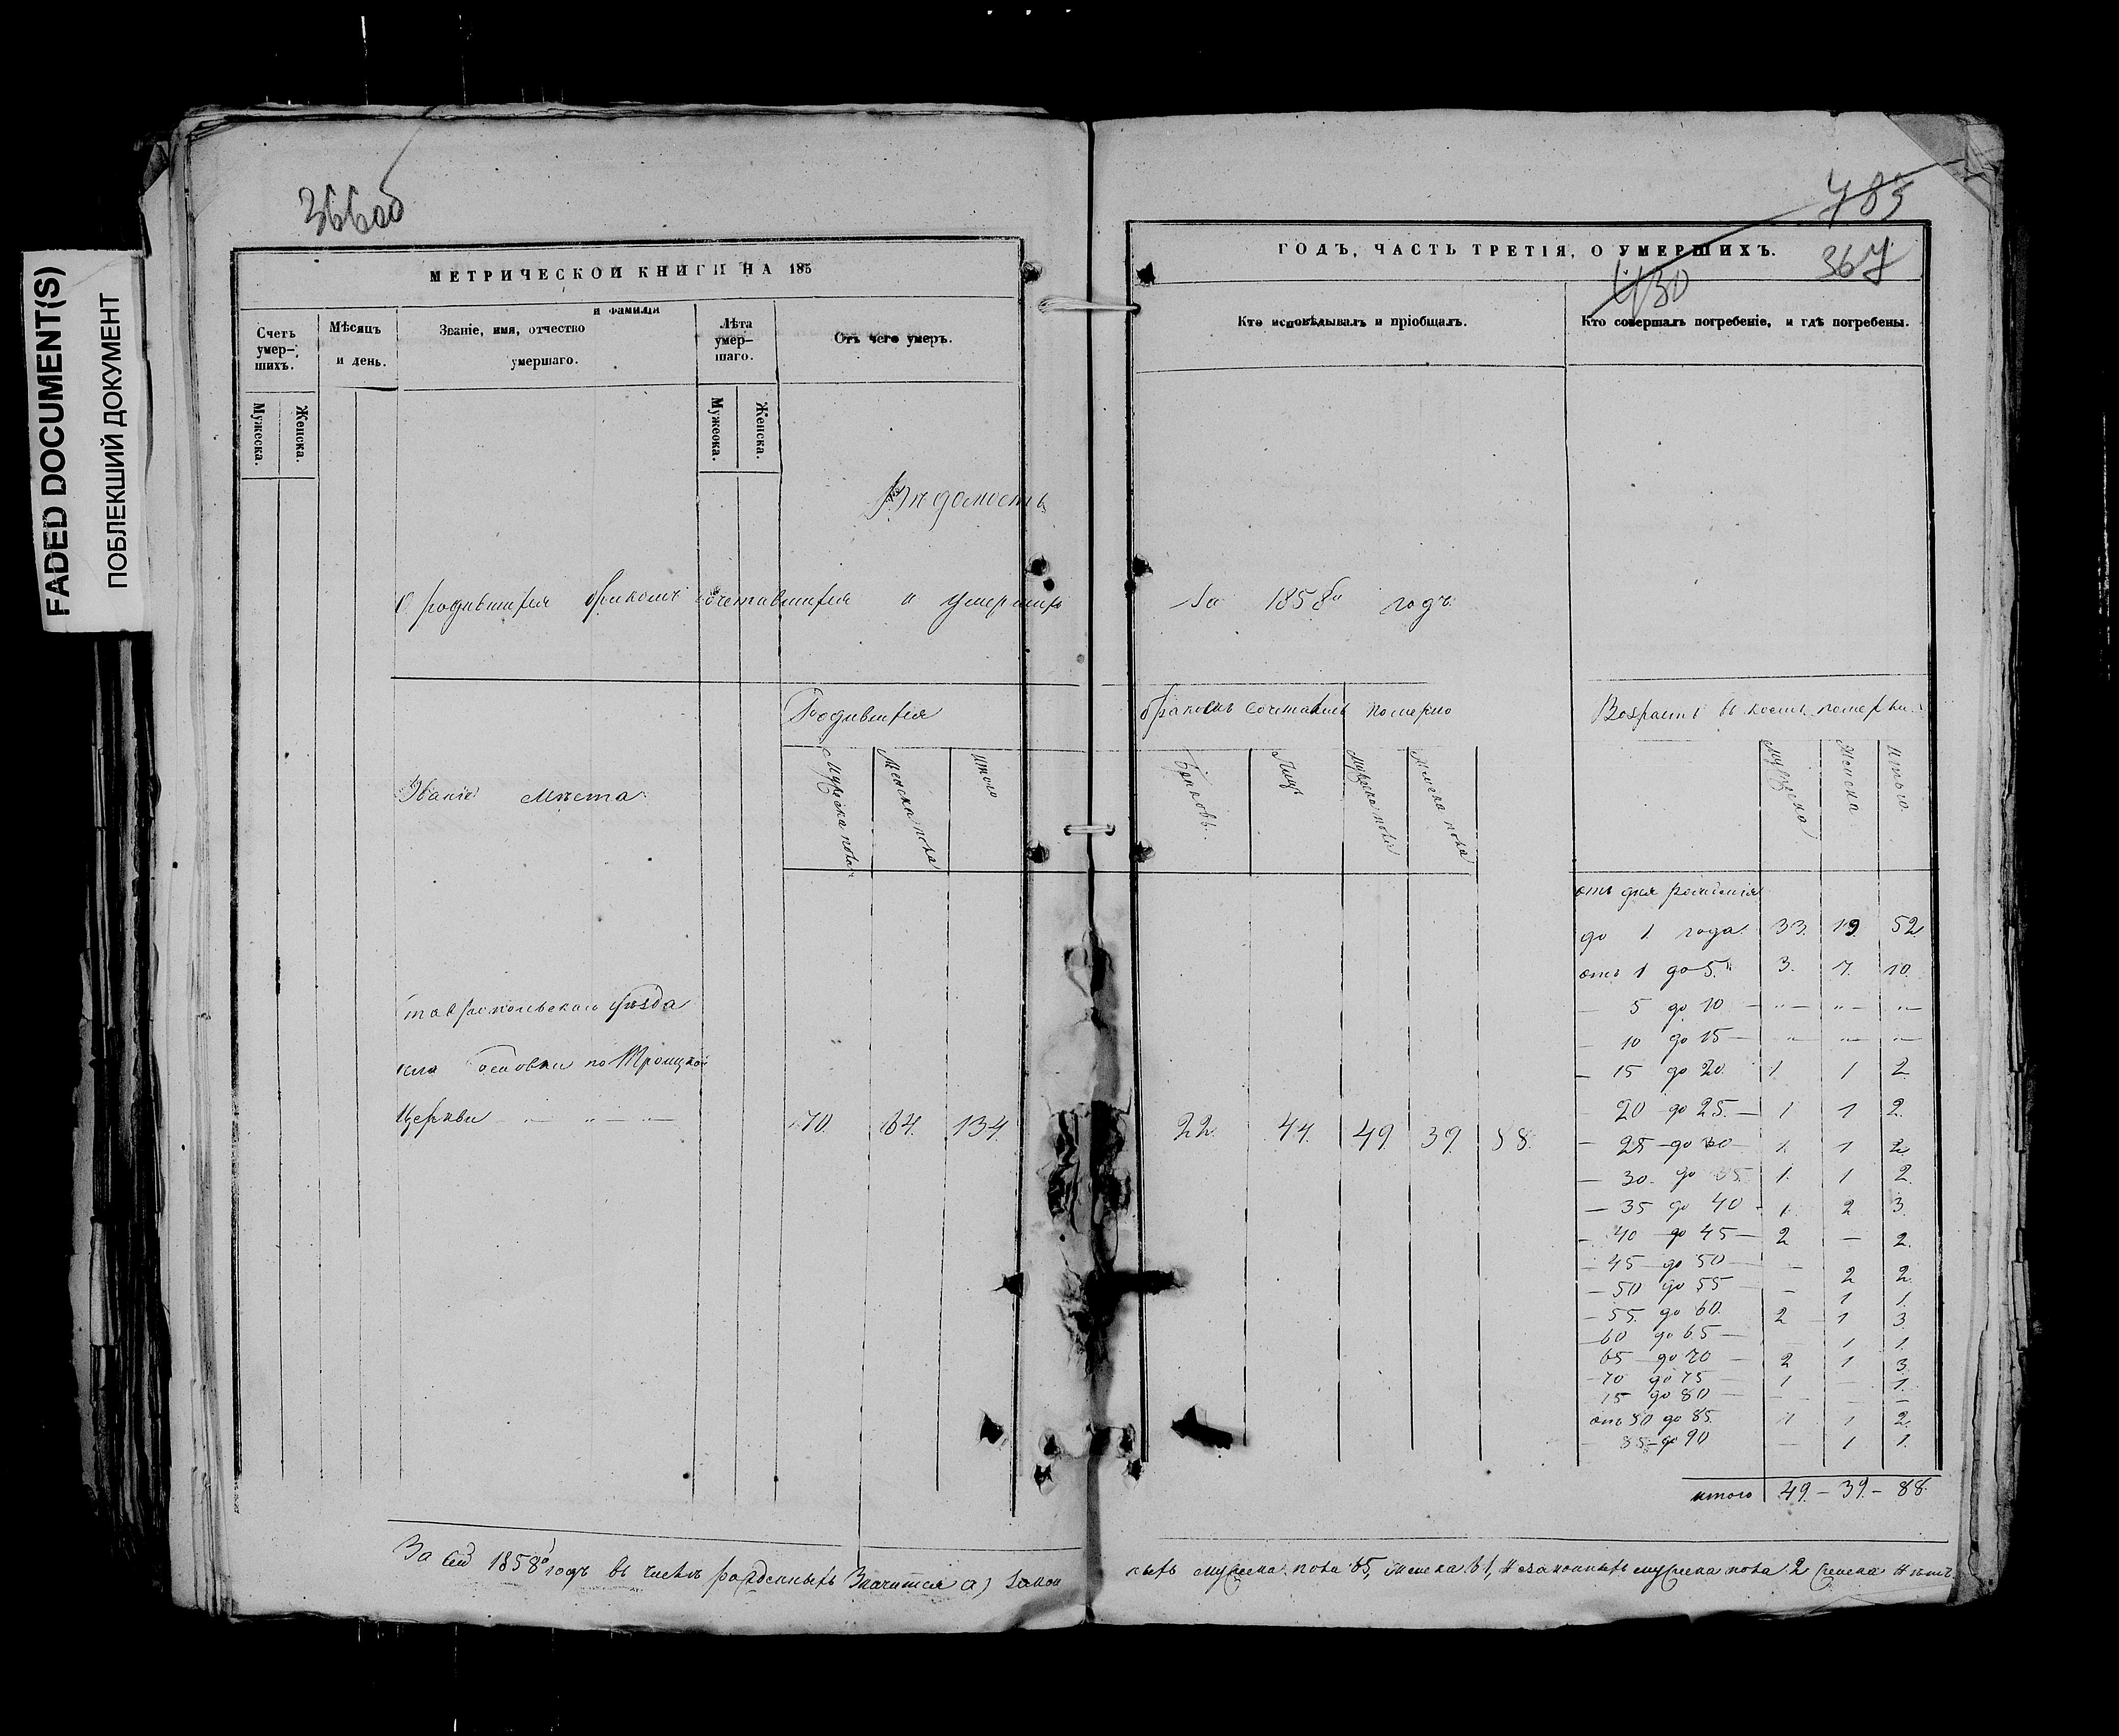 FADED DOCUMENT(S)
ПОБЛЕКШИЙ ДОКУМЕНТ
366об
МЕТРИЧЕСКОЙ КНИГИ НА 185
Счетъ умер-шихъ.
Мужеска.
Женска.
Мѣсяцъ и день.
Званіе, имя, отчество и фамилія умершаго.
Лѣта умер-шаго.
Мужеска.
Женска.
Отъ чего умеръ.
Вѣдомость
О родившихся бракомъ сочетавшихся и умершихъ
Родившихся
Званіе Мѣста
Мужеска пола
Женска пола
Итого
Ставропольскаго уѣзда
села по Троицкой
Церкви — „ — 70. 64. 134.
За сей 1858й годъ въ числѣ рожденныхъ Значится а) закон
485
430
367
ГОДЪ, ЧАСТЬ ТРЕТІЯ, О УМЕРШИХЪ.
Кто исповѣдывалъ и пріобщалъ.
Кто совершалъ погребеніе, и гдѣ погребены.
За 1858й годъ.
бракомъ сочетались
померло
Браковъ.
Лицъ
Мужеска пола
Женска пола
22. 44. 49. 39. 88.
Мужеска
Женска
Итого
отъ дня рожденія
до 1. года. 33. 19. 52.
отъ 1 до 5. 3. 7. 10.
— 5 до 10 — „— „— „—
— 10 до 15 — „— „— „—
— 15 до 20. 1. 1 2.
— 20 до 25. — 1 1 2.
— 25 — до 30 — 1. 1 2.
— 30. до 35. 1. 1 2.
— 35 до 40 — 1. 2 3.
— 40 до 45 — 2 — 2.
— 45 до 50 — — 2 2.
— 50 до 55 — — 1 1.
— 55. до 60. 2 1 3
— 60 до 65 — 1 1.
65 — до 70 — 2 1 3.
— 70 до 75 — 1 — 1.
75 до 80 — — — —
отъ 80 до 85. 1 1 2.
85 — до 90 — 1 1.
итого 49. — 39. — 88.
ныхъ мужеска пола 65, женска 61, незаконныхъ мужеска пола 2 женска